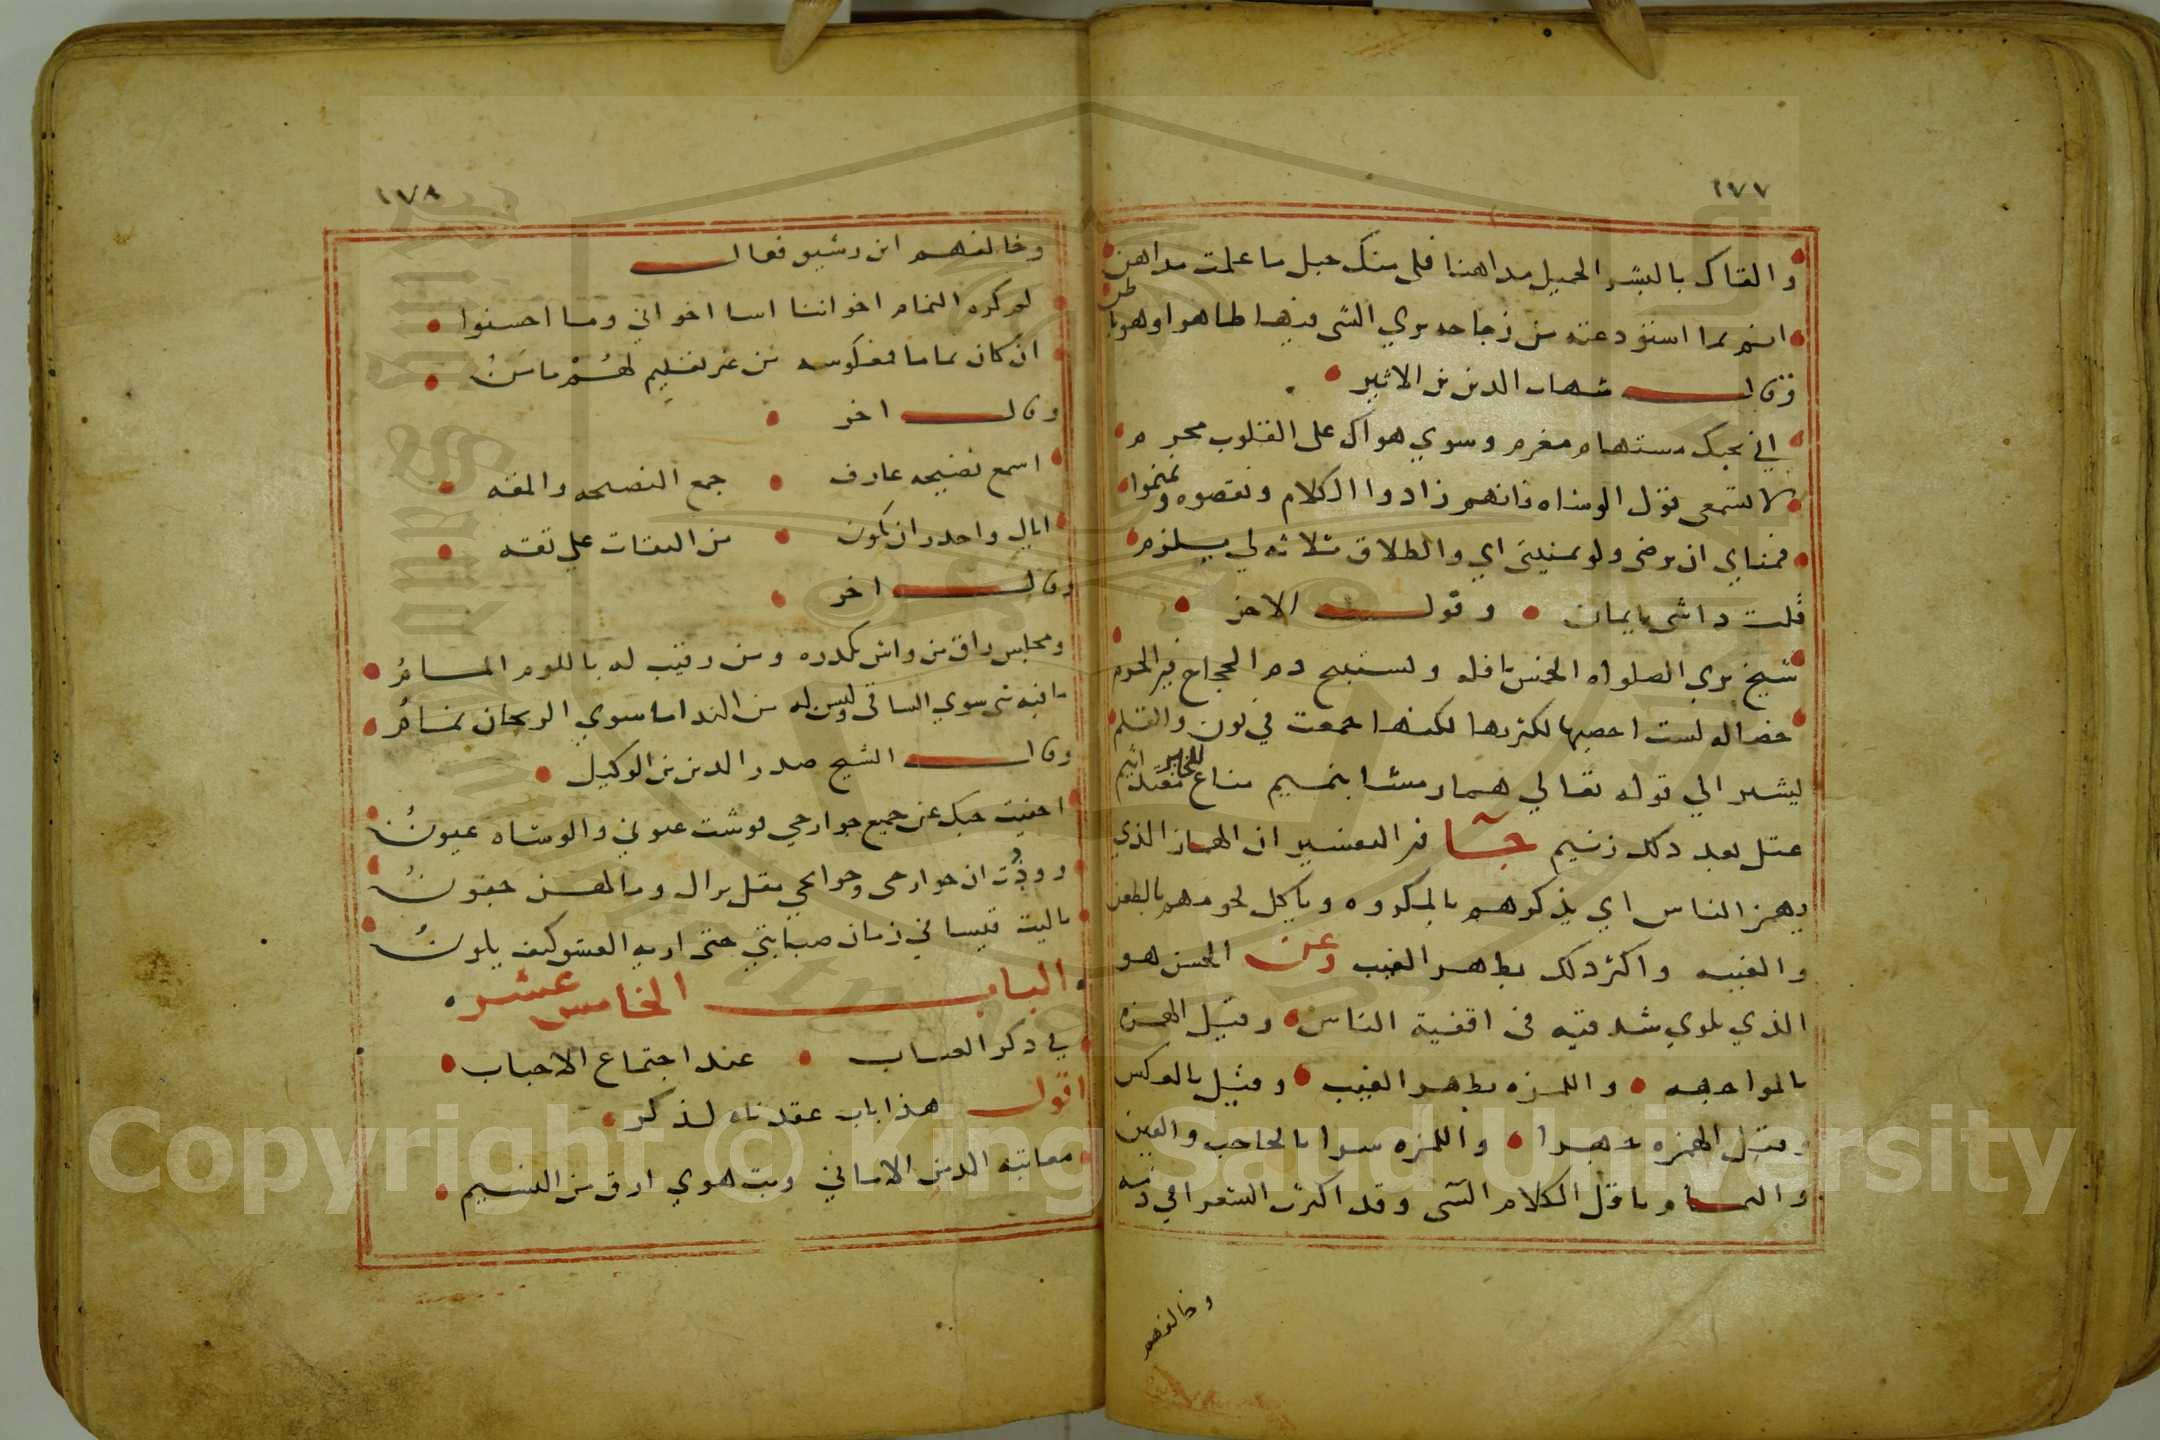 ١٧٧
والقاك بالبشر الجميل مداهنا فلي منك خيل ما علمت مداهن
انم بما استودعته من زجاجه يري الشي فيها ظاهرا وهو باطن
وقال شهاب الدين بن الاثير
اني بحبك مستهام مغرم وسوي هواك على القلوب محرم
لا تسمعى قول الوشاه فانهم زادوا الكلام ونقصوه ونمنموا
فمناي ان ترضى ولو بمنيتى اي والطلاق ثلاثه لي يلزم
قلت داشى بايمان وقول الاخر
شيخ يري الصلوات الخمس نافله ويستبيح دم الحجاج في الحرم
خصاله لست احصيها لكثرتها لكنها جمعت في نون والقلم
يشير الي قوله تعالي هماز مشا بنميم مناع للخير معتد اثيم
عتل بعد ذلك زنيم جآ في التفسير ان الهماز الذي
يهمز الناس اي يذكرهم بالمكروه وياكل لحومهم بالطعن
والغيبه واكثر ذلك بظهر الغيب وعن الحسن هو
الذي يلوي شدقيه فى اقفية الناس وقيل الهمزه
بالمواجهه واللمزه بظهر الغيب وقيل بالعكس
وقيل الهمزه جهرا واللمزه سرا بالحاجب والعين
والنمام ناقل الكلام السى وقد اكثرت الشعرا في ذمه
وخالفهم
١٧٨
وخالفهم ابن رشيق فقال
لم كره النمام اخواننا اسا اخواني وما احسنوا
ان كان نماما فمعكوسه من غير تعليم لهم مامن
وقال اخر
اسمع نصيحه عارف جمع النصيحه والمقه
اياك واحذر ان تكون من الثقات علي ثقه
وقال اخر
ومجلس راق من واش يكدره ومن رقيب له باللوم المام
ما فيه من سوي الساقى وليس له من الندا ما سوي الريحان نمام
وقال الشيخ صدر الدين بن الوكيل
اخفيت حبك عن جميع جوارحي فوشت عيوني والوشاه عيون
ووددت ان جوارحى وجوانحي مقل يراك وما لهن جفون
ياليت قيسا في زمان صبابتي حتى اريه العشق كيف يلون
الباب الخامس عشر
في ذكر العتاب عند اجتماع الاحباب
اقول هذا باب عقدناه لذكر
معاتبة الدمن الاماني وبت هوي ارق من النسيم
Copyright © King Saud University
King Saud University